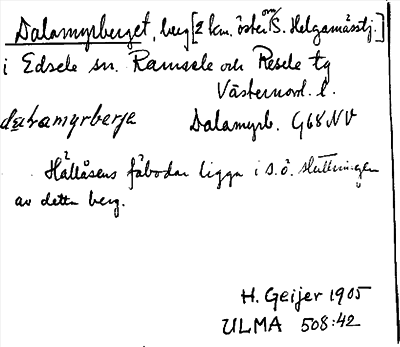 Dalamyrberget, berg [2 km. öster om S. Helgamässtj.]
i Edsele sn. Ramsele och Resele tg
Västernorrl. l.
Dalamyrb. G68NV
Hållåsens fäbodar ligga i s.ö. sluttningen
av detta berg.
H. Geijer 1905
ULMA 508:42